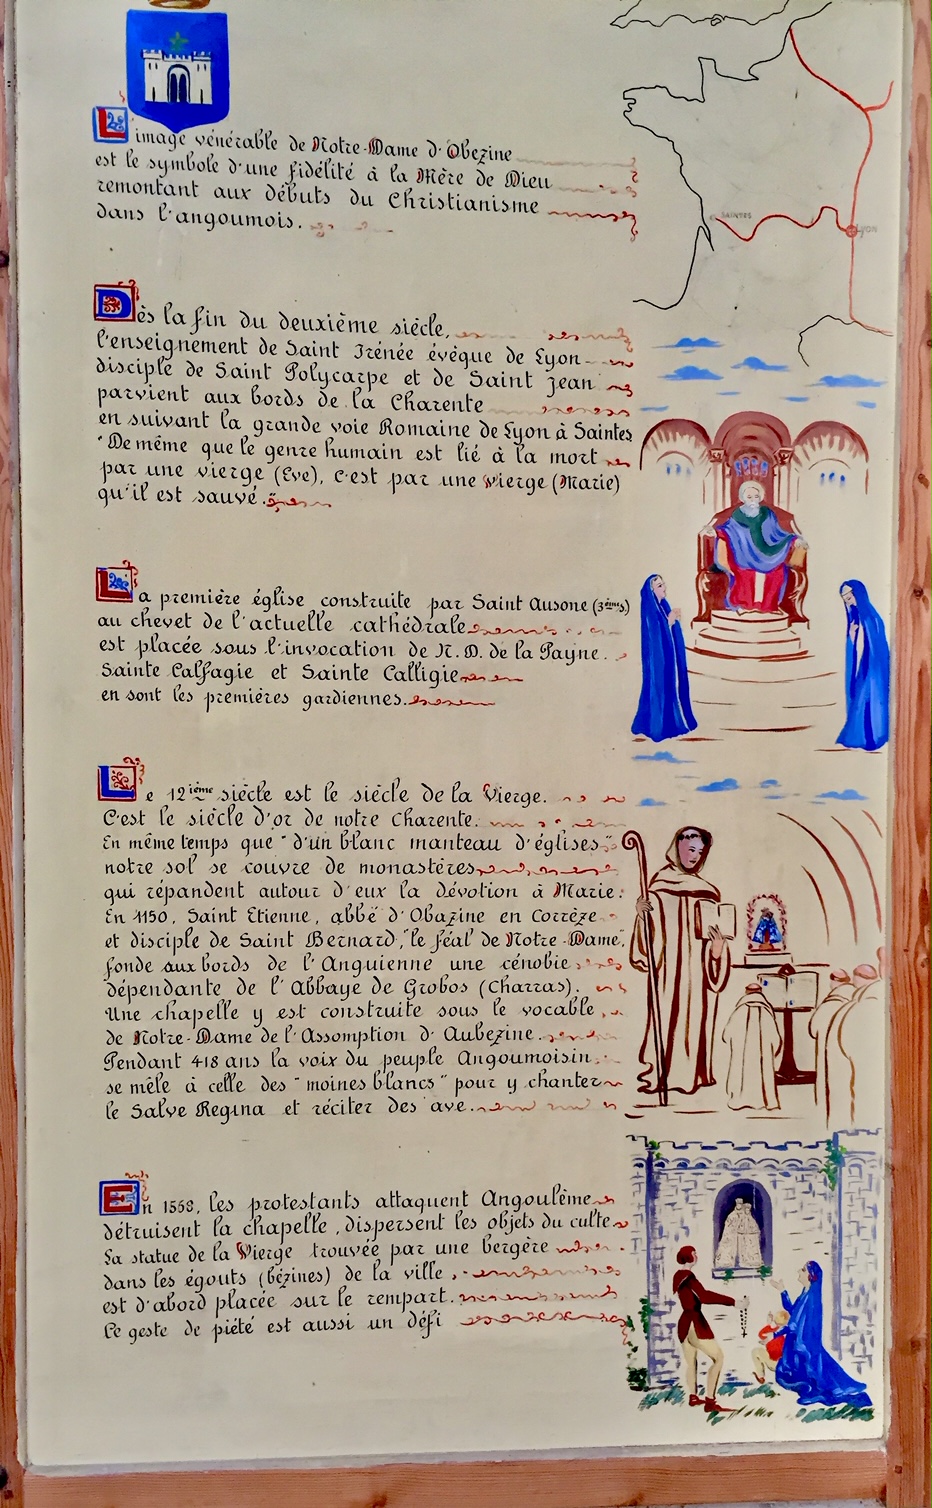 L'image vénérable de Notre-Dame d'Obezine
est le symbole d'une fidélité à la Mère de Dieu
remontant aux débuts du Christianisme
dans l'angoumois.
SAINTES
LYON
Dès la fin du deuxième siècle,
l'enseignement de Saint Irénée évêque de Lyon
disciple de Saint Polycarpe et de Saint Jean
parvient aux bords de la Charente
en suivant la grande voie Romaine de Lyon à Saintes
"De même que le genre humain est lié à la mort
par une vierge (Eve), c'est par une Vierge (Marie)
qu'il est sauvé."
La première église construite par Saint Ausone (3ème s)
au chevet de l'actuelle cathédrale
est placée sous l'invocation de N. D. de la Payne.
Sainte Calfagie et Sainte Calligie
en sont les premières gardiennes.
Le 12ième siècle est le siècle de la Vierge.
C'est le siècle d'or de notre Charente.
En même temps que "d'un blanc manteau d'églises"
notre sol se couvre de monastères
qui répandent autour d'eux la dévotion à Marie.
En 1150, Saint Etienne, abbé d'Obazine en Corrèze
et disciple de Saint Bernard, "le féal de Notre-Dame",
fonde aux bords de l'Anguienne une cénobie
dépendante de l'Abbaye de Grobos (Charras).
Une chapelle y est construite sous le vocable
de Notre-Dame de l'Assomption d'Aubezine.
Pendant 418 ans la voix du peuple Angoumoisin
se mêle à celle des "moines blancs" pour y chanter
le Salve Regina et réciter des ave.
En 1568, les protestants attaquent Angoulême
détruisent la chapelle, dispersent les objets du culte
La statue de la Vierge trouvée par une bergère
dans les égouts (bézines) de la ville,
est d'abord placée sur le rempart.
Ce geste de piété est aussi un défi